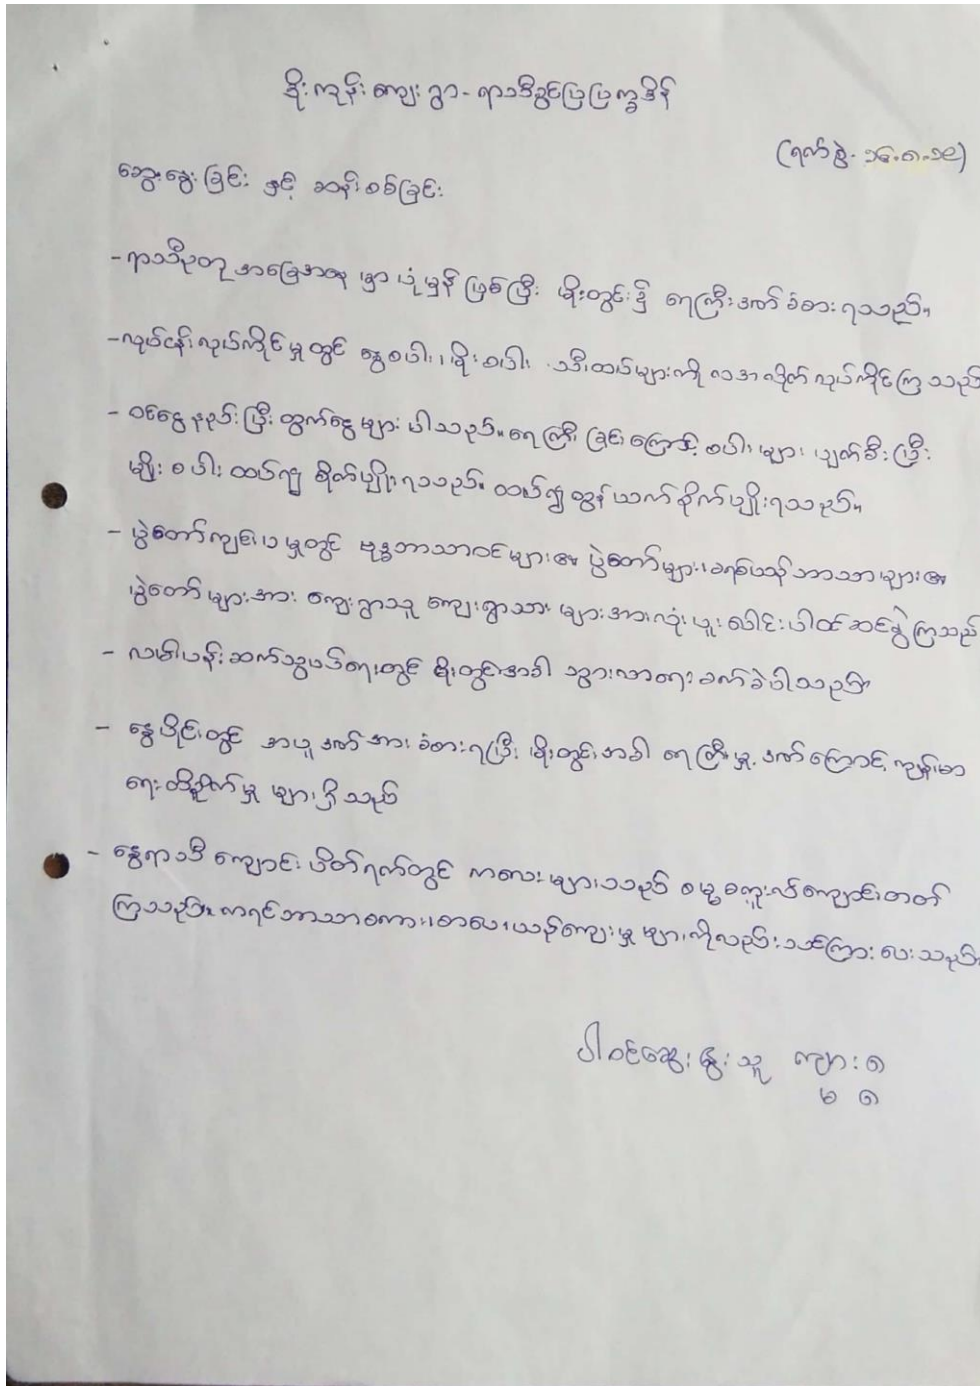 ဒိုးကုန်းကျေးရွာ - ရာသီခွင်ပြပြက္ခဒိန်
(ရက်စွဲ - ၁၄.၈.၁၉)
ဆွေးနွေးခြင်း နှင့် ဆန်းစစ်ခြင်း
- ရာသီဥတု အခြေအနေ မှာ ပုံမှန် ဖြစ်ပြီး မိုးတွင်း၌ ရေကြီးဒဏ် ခံစားရသည်။
- လုပ်ငန်းလုပ်ကိုင်မှုတွင် နွေစပါး၊ မိုးစပါး သီးထပ်များကို လအလိုက် လုပ်ကိုင်ကြသည်
- ဝင်ငွေနည်းပြီး ထွက်ငွေများပါသည်။ ရေကြီးခြင်းကြောင့် စပါးများ ပျက်စီးပြီး
မျိုးစပါး ထပ်၍ စိုက်ပျိုးရသည်။ ထယ်၍ ထွန်ယက်စိုက်ပျိုးရသည်။
- ပွဲတော်ကျင်းပမှုတွင် ဗုဒ္ဓဘာသာဝင်များ၏ ပွဲတော်များ၊ ခရစ်ယာန်ဘာသာများ၏
ပွဲတော်များအား ကျေးရွာသူ ကျေးရွာသားများအားလုံး ပူးပေါင်းပါဝင်ဆင်နွှဲကြသည်
- လမ်းပန်းဆက်သွယ်ရေးတွင် မိုးတွင်းအခါ သွားလာရေးခက်ခဲပါသည်။
- နွေပိုင်းတွင် အပူဒဏ်အား ခံစားရပြီး မိုးတွင်းအခါ ရေကြီးမှု ဒဏ်ကြောင့် ကျန်းမာ
ရေးထိခိုက်မှု များရှိသည်
- နွေရာသီ ကျောင်းပိတ်ရက်တွင် ကလေးများသည် ဓမ္မစကူးလ်ကျောင်းတတ်
ကြသည်။ ကရင်ဘာသာစကား၊ စာပေ၊ ယဉ်ကျေးမှု များကိုလည်း သင်ကြားပေးသည်။
ပါဝင်ဆွေးနွေးသူ ကျား ၈
မ ၈